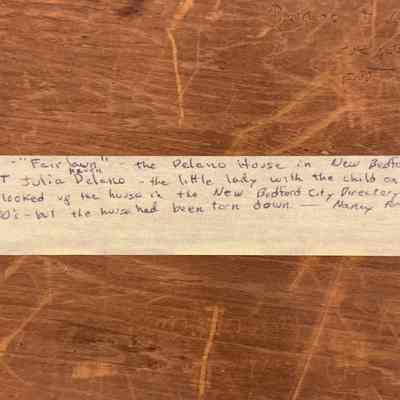 "Fairlawn" - the Delano House in New Bedfo
haven
T Julia Delano - the little lady with the child on
looked up the house in the New Bedford City Directory
00's - but the house had been torn down — Nancy